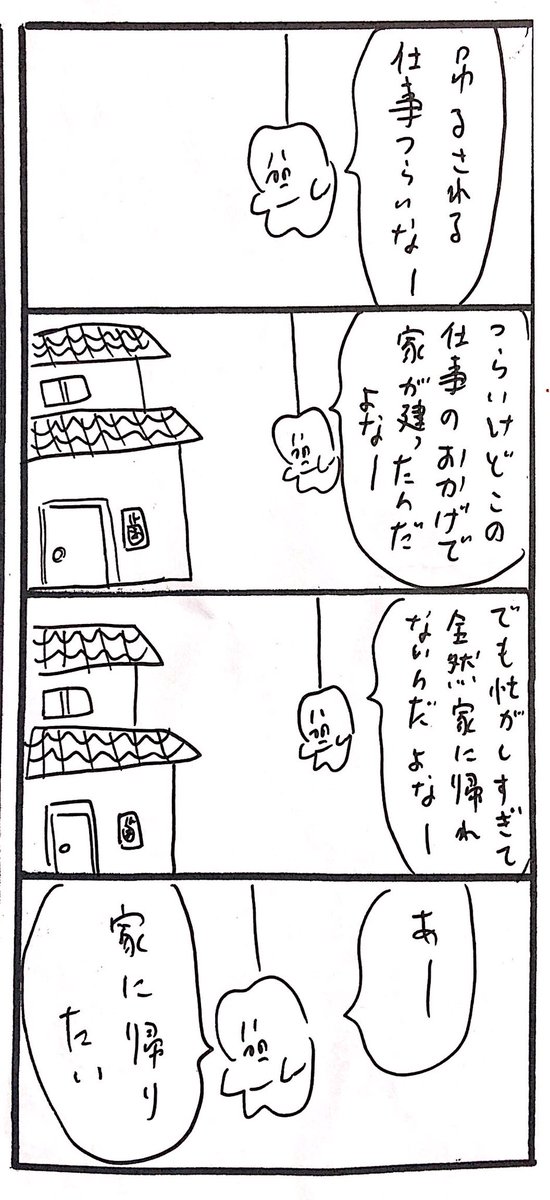 吊るされる
仕事つらいなー
つらいけどこの
仕事のおかげで
家が建ったんだ
よなー
歯
でも忙がしすぎて
全然家に帰れ
ないんだよなー
歯
あー
家に帰り
たい